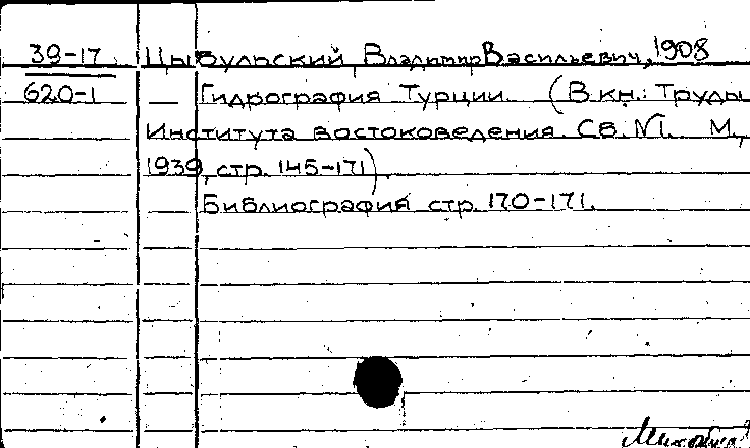 39-17 Цыбульский, Владимир Васильевич, 1908
620-1 — Гидрография Турции. (В кн.: Труды
Института востоковедения. Сб. №1. М.,
1939, стр. 145-171).
Библиография стр. 170-171.